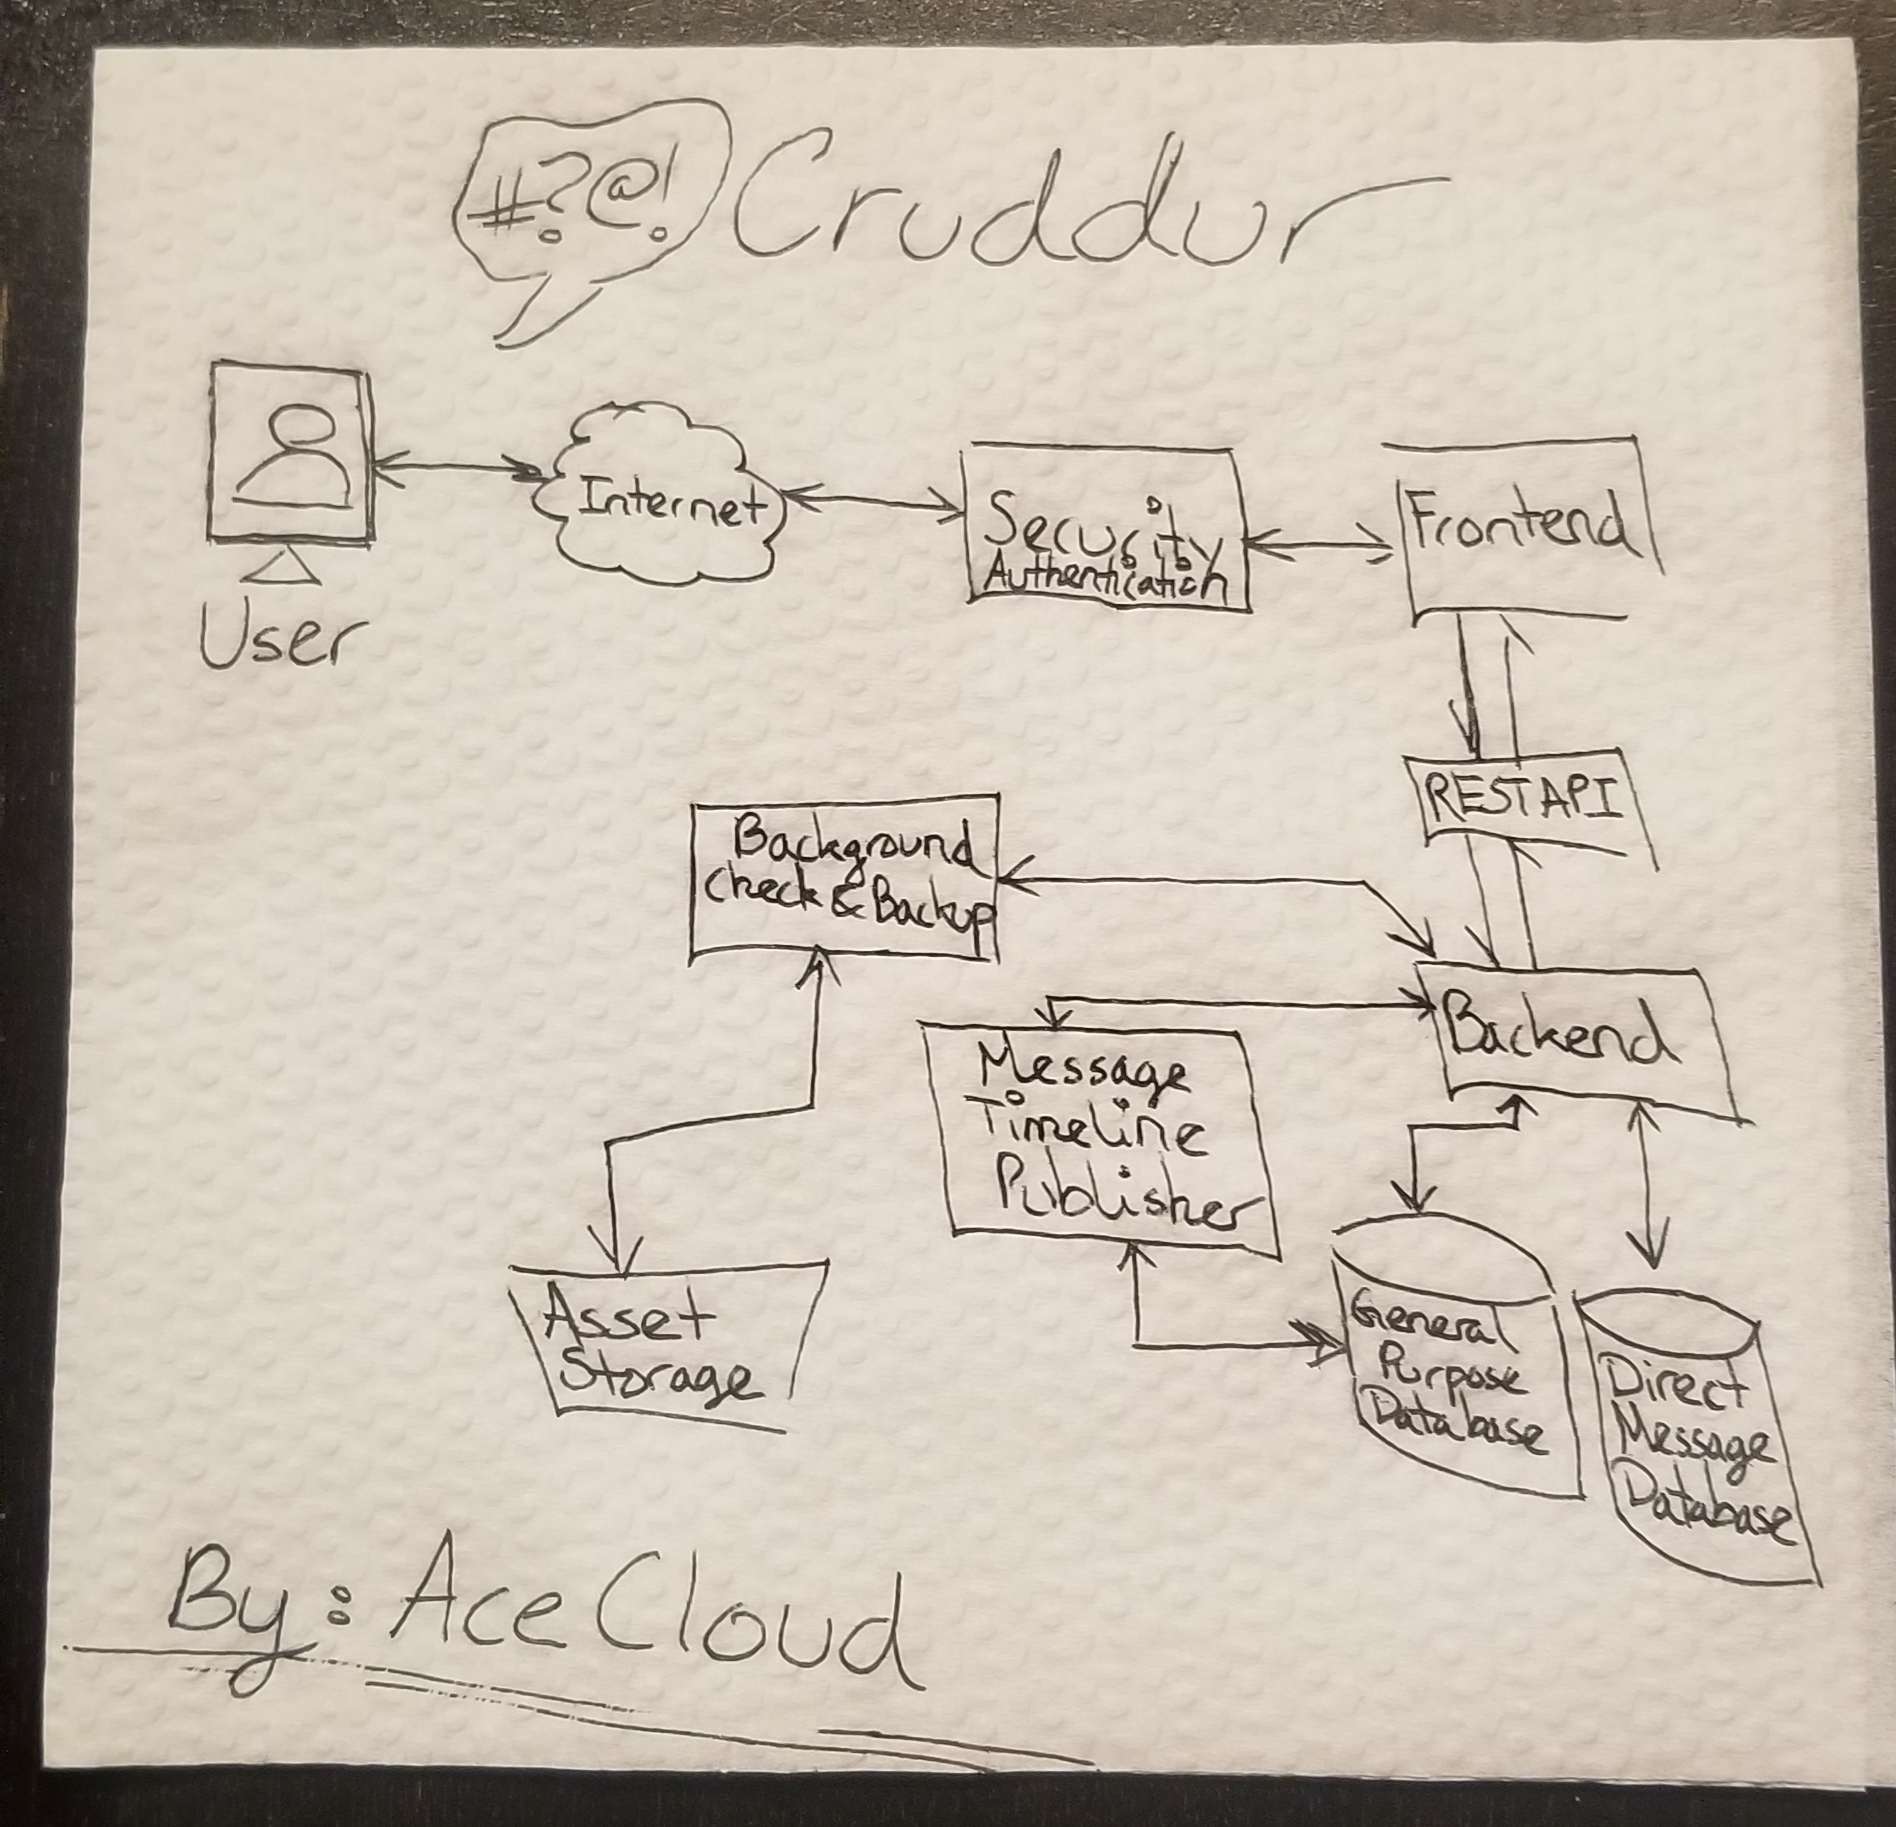 #?@! Cruddur
Internet
Security
Authentication
Frontend
User
REST API
Background
Check & Backup
Backend
Message
Timeline
Publisher
Asset
Storage
General
Purpose
Database
Direct
Message
Database
By: Ace Cloud